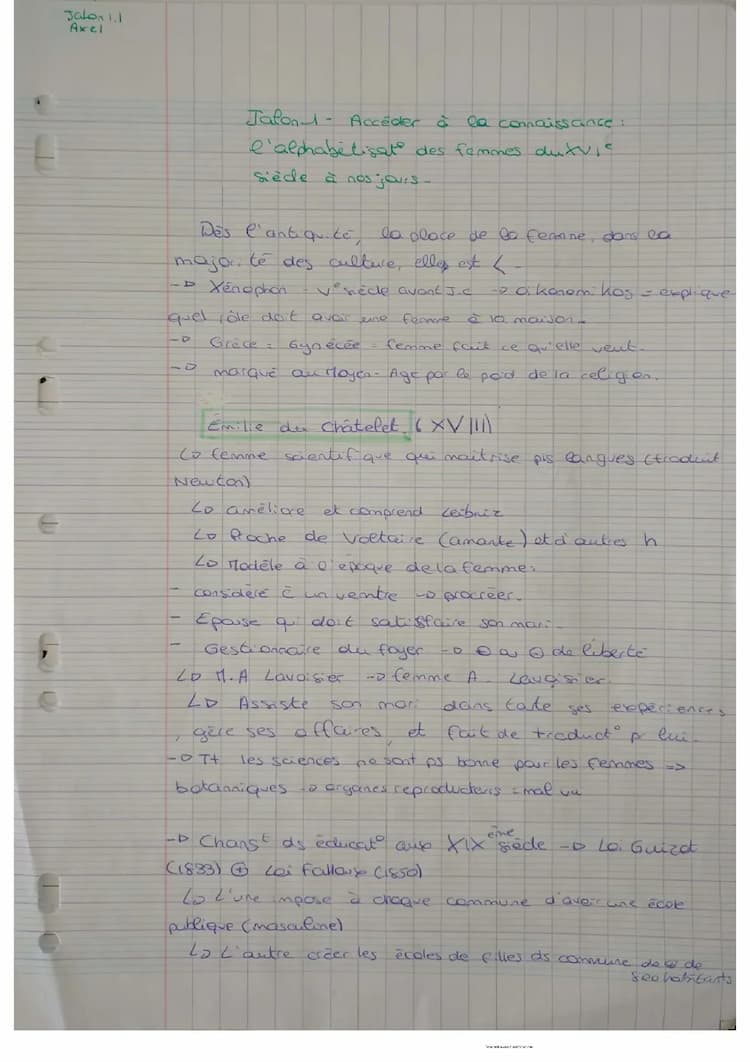 Jalon 1.1
Axel
Jalon 1 - Accéder à la connaissance :
l'alphabétisat° des femmes du XVIe
siècle à nos jours -
Dès l'antiquité, la place de la femme, dans la
majorité des culture, elles est < -
-> Xénophon - Ve siècle avant J.C -> oikonomikos = explique
quel rôle doit avoir une femme à la maison -
-> Grèce = Gynécée = femme fait ce qu'elle veut -
-> marqué au Moyen-Age par le poid de la religion.
Émilie du Châtelet (XVIII)
↳ femme scientifique qui maitrise pls langues (traduit
Newton)
↳ améliore et comprend Leibniz
↳ Proche de Voltaire (amante) et d'autres h
↳ Modèle à l'époque de la femme :
- considéré c̄ un ventre -> procréer.
- Epouse qui doit satisfaire son mari -
- Gestionnaire du foyer -> ⊕ ou ⊖ de liberté
↳ M.A Lavoisier -> femme A. Lavoisier.
↳ Assiste son mari dans toute ses expériences
, gère ses affaires, et fait de traduct° pr lui -
-> Tt les sciences ne sont ps bonne pour les femmes =>
botanniques -> organes reproducteurs = mal vu
-> Changt ds éducat° aux XIXème siècle -> Loi Guizot
(1833) ⊕ Loi Falloux (1850)
↳ L'une impose à chaque commune d'avoir une école
publique (masculine)
↳ L'autre créer les écoles de filles ds commune de ⊕ de
800 habitants